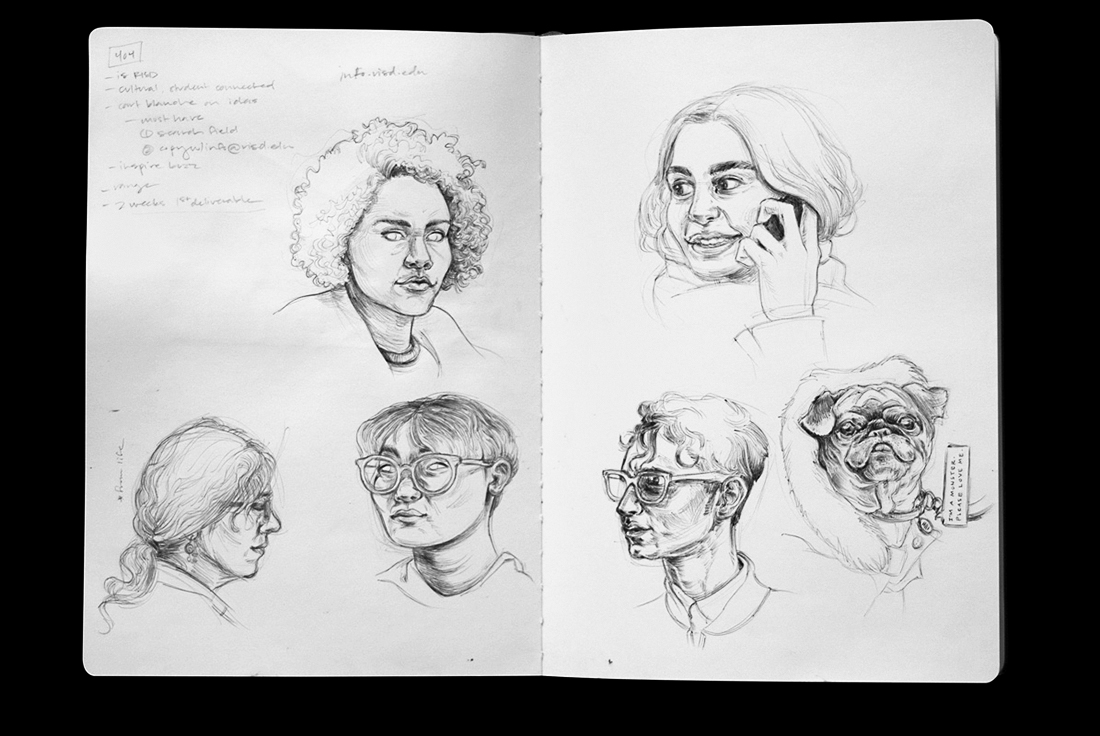 404
- is RISD
- cultural. student connected
- cart blanche on ideas
- must have
① search field
② copy w/ info@risd.edu
- inspire buzz
- range
- 2 weeks 1st deliverable
info.risd.edu
* from life
I'M A MONSTER.
PLEASE LOVE ME.